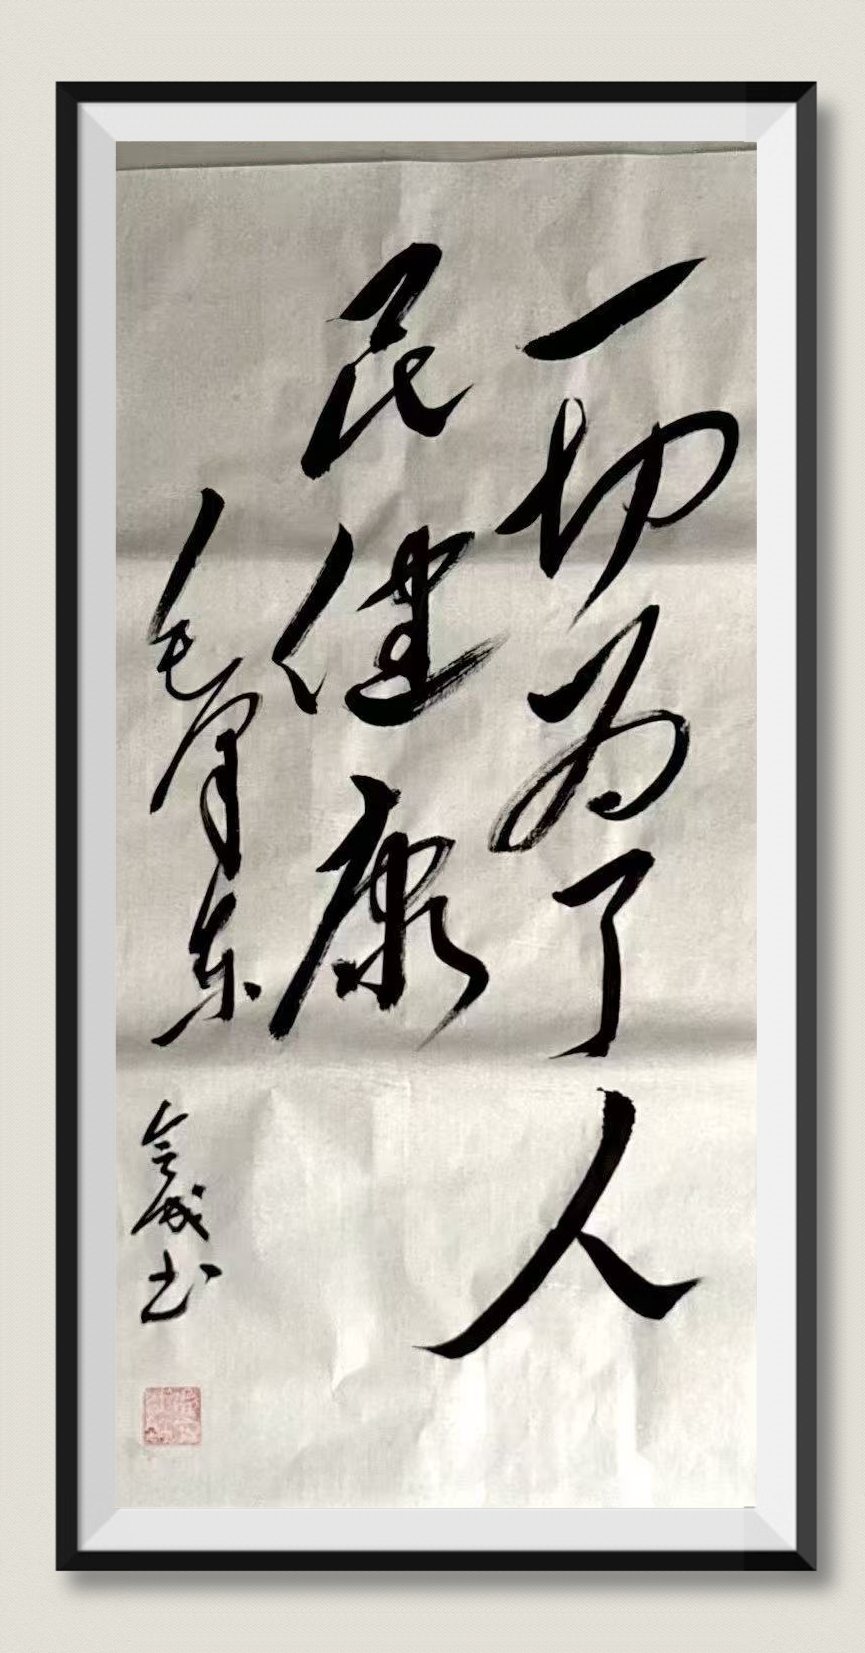 一切为了人
民健康
毛泽东
会成书